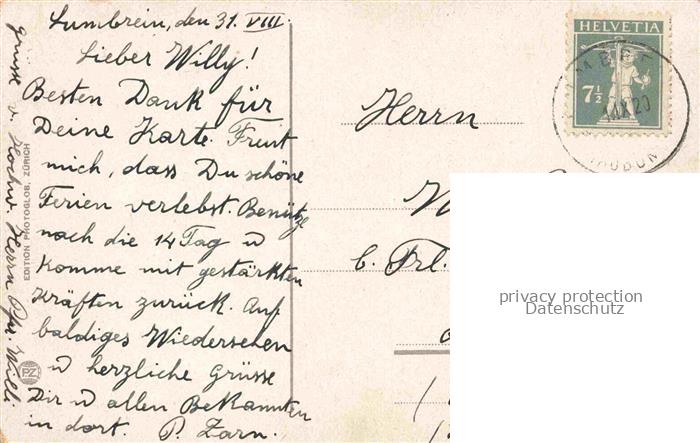 Lumbrein, den 31. VIII.
Lieber Willy!
Besten Dank für
Deine Karte. Freut
mich, dass Du schöne
Ferien verlebst. Benütze
noch die 14 Tag u
komme mit gestärkten
Kräften zurück. Auf
baldiges Wiedersehen
u herzliche Grüsse
Dir u allen Bekannten
in dort. P. Zarn.
Grüsse v. Hochw. Herrn Pfr. Willi
EDITION PHOTOGLOB, ZÜRICH
PZ
HELVETIA
7½
Herrn
b. Frl.
privacy protection
Datenschutz